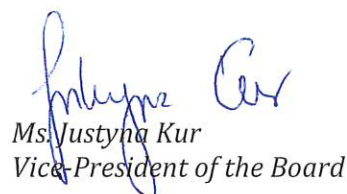 Justyna Kur
Ms. Justyna Kur
Vice-President of the Board